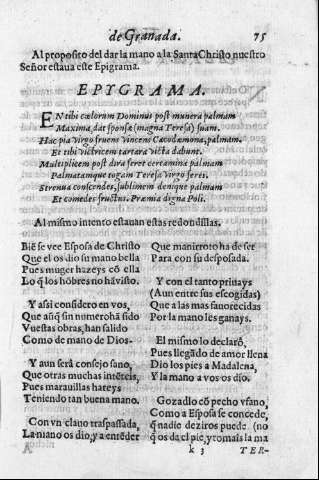 de Granada. 75
Al proposito del dar la mano a la Santa Christo nuestro
Señor estaua este Epigrama.
EPYGRAMA.
EN tibi cælorum Dominus post munera palmam
Maxima, dat sponsæ (magna Teresa) suam.
Hac pia Virgo fruens Vincens Cacodæmona, palmam.
Et tibi victricem tartara victa dabunt.
Multiplicem post dira feret certamina palmam
Palmatamque togam Teresa Virgo feres.
Strenua conscendes, sublimem denique palmam
Et comedes fructus. Præmia digna Poli.
Al mismo intento estauan estas redondillas.
Biē se vee Esposa de Christo
Que el os dio su mano bella
Pues muger hazeys cō ella
Lo q̃ los hōbres no hā visto.
Y asi considero en vos,
Que aūq̃ sin numero hā sido
Vuestas obras, han salido
Como de mano de Dios.
Y aun será consejo sano,
Que otras muchas intēteis,
Pues marauillas hazeys
Teniendo tan buena mano.
Con vn clauo traspassada,
La mano os dio, y a entēder
Que manirroto ha de ser
Para con su desposada.
Y con el tanto priuays
(Aun entre sus escogidas)
Que a las mas fauorecidas
Por la mano les ganays.
El mismo lo declaró,
Pues llegādo de amor llena
Dio los pies a Madalena,
Y la mano a vos os dio.
Gozadlo cō pecho vfano,
Como a Esposa se concede,
q̃ nadie deziros puede (no
q̃ os da el pie, y tomais la ma
k 3 TER-